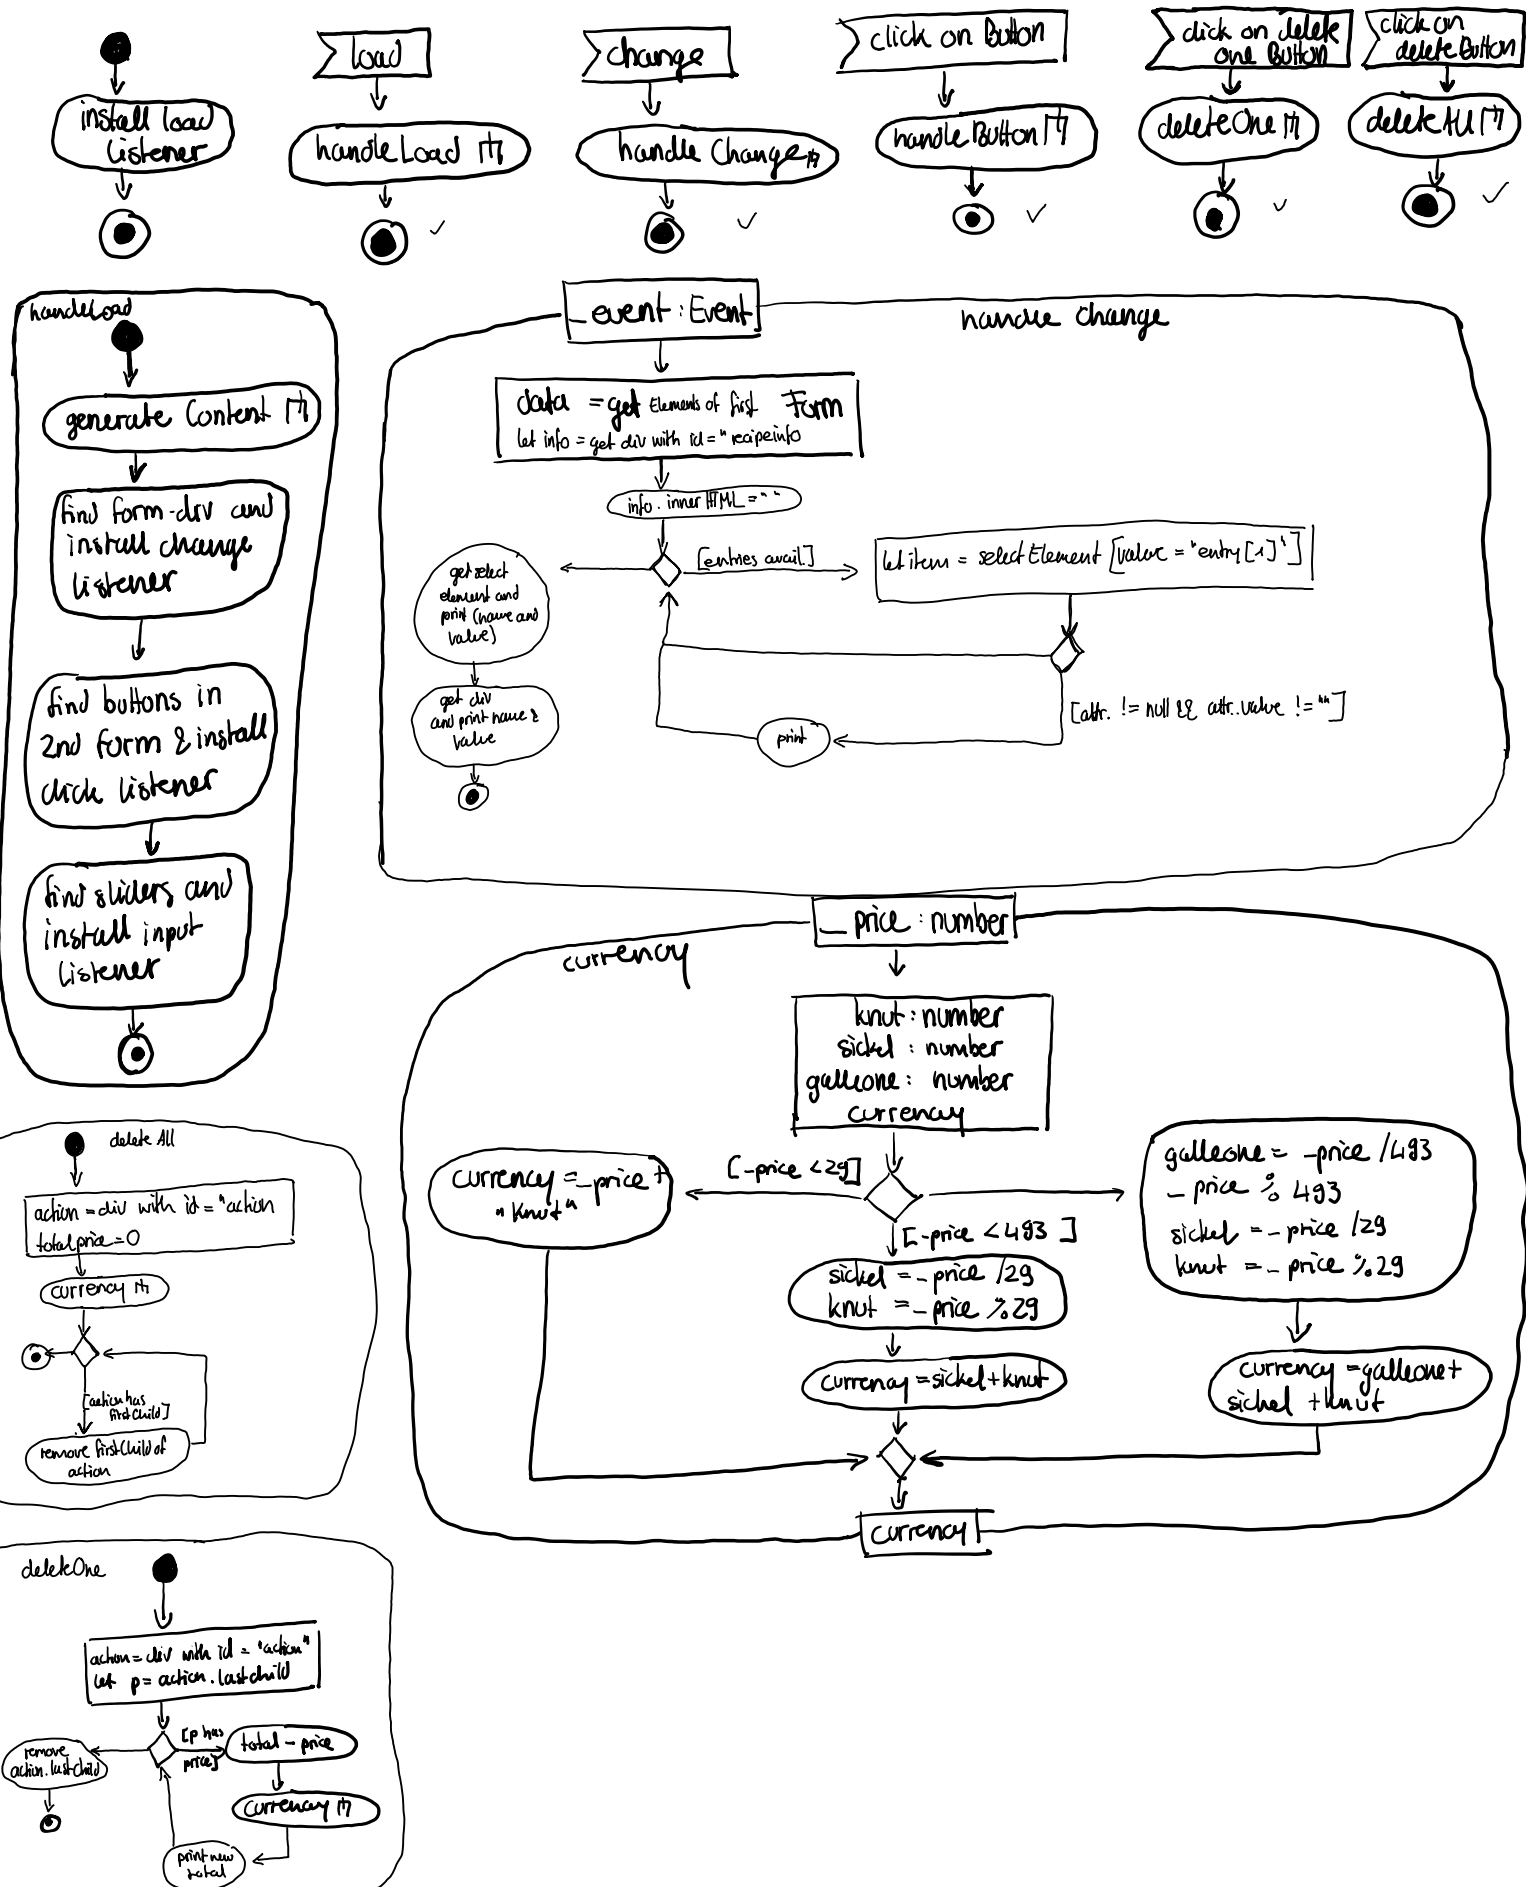 load
change
click on Button
click on delete
one Button
click on
deleteButton
install load
listener
handleLoad
handle Change
handleButton
deleteOne
deleteAll
handleLoad
generate Content
find form-div and
install change
listener
find buttons in
2nd form & install
click listener
find sliders and
install input
listener
_event : Event
handle change
data = get Elements of first Form
let info = get div with id = "recipeinfo
info.innerHTML = " "
[entries avail.]
let item = select Element [value = "entry[1]"]
get select
element and
print (name and
value)
get div
and print name &
value
print
[attr. != null && attr.value != ""]
_price : number
currency
knut : number
sickel : number
galleone : number
currency
[_price < 29]
currency = _price +
"Knut"
[_price < 493]
sickel = _price /29
knut = _price % 29
currency = sickel + knut
galleone = _price /493
_price % 493
sickel = _price /29
knut = _price % 29
currency = galleone +
sickel + knut
currency
delete All
action = div with id = "action
total price = 0
currency
[action has
firstChild]
remove firstChild of
action
deleteOne
action = div with id = "action"
let p = action.lastchild
[p has
price]
total - price
currency
print new
total
remove
action.lastchild